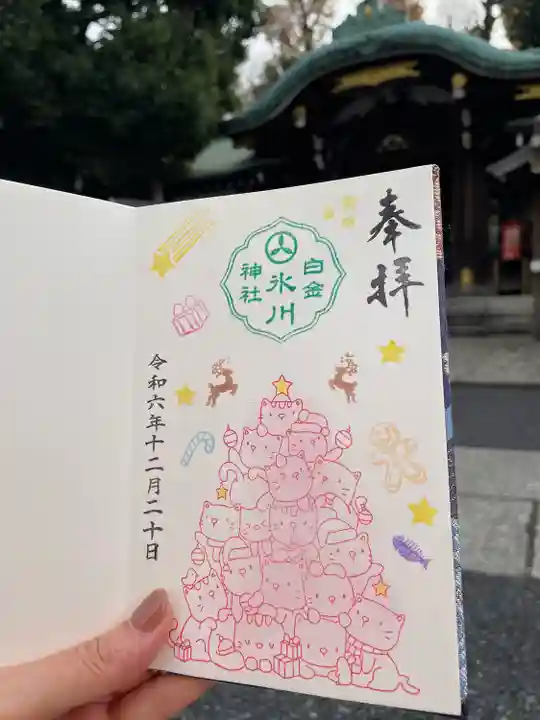 奉拝
白金
氷川
神社
令和六年十二月二十日